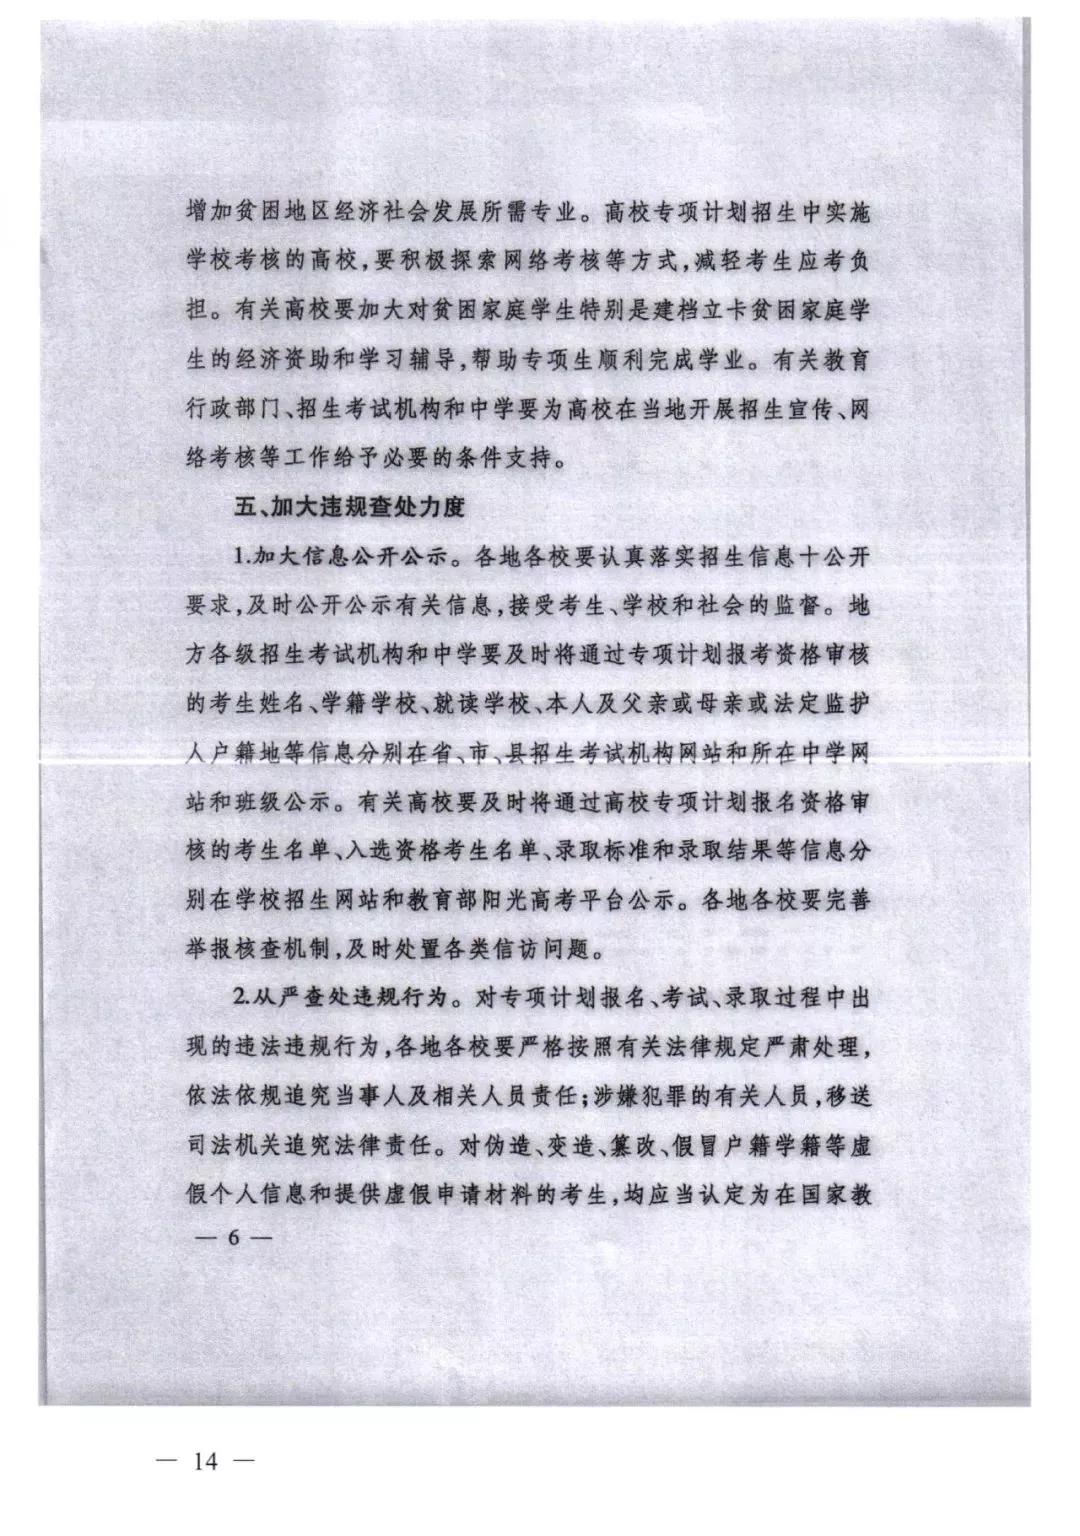 增加贫困地区经济社会发展所需专业。高校专项计划招生中实施
学校考核的高校,要积极探索网络考核等方式,减轻考生应考负
担。有关高校要加大对贫困家庭学生特别是建档立卡贫困家庭学
生的经济资助和学习辅导,帮助专项生顺利完成学业。有关教育
行政部门、招生考试机构和中学要为高校在当地开展招生宣传、网
络考核等工作给予必要的条件支持。
五、加大违规查处力度
1.加大信息公开公示。各地各校要认真落实招生信息十公开
要求,及时公开公示有关信息,接受考生、学校和社会的监督。地
方各级招生考试机构和中学要及时将通过专项计划报考资格审核
的考生姓名、学籍学校、就读学校、本人及父亲或母亲或法定监护
人户籍地等信息分别在省、市、县招生考试机构网站和所在中学网
站和班级公示。有关高校要及时将通过高校专项计划报名资格审
核的考生名单、入选资格考生名单、录取标准和录取结果等信息分
别在学校招生网站和教育部阳光高考平台公示。各地各校要完善
举报核查机制,及时处置各类信访问题。
2.从严查处违规行为。对专项计划报名、考试、录取过程中出
现的违法违规行为,各地各校要严格按照有关法律规定严肃处理,
依法依规追究当事人及相关人员责任;涉嫌犯罪的有关人员,移送
司法机关追究法律责任。对伪造、变造、篡改、假冒户籍学籍等虚
假个人信息和提供虚假申请材料的考生,均应当认定为在国家教
— 6 —
— 14 —